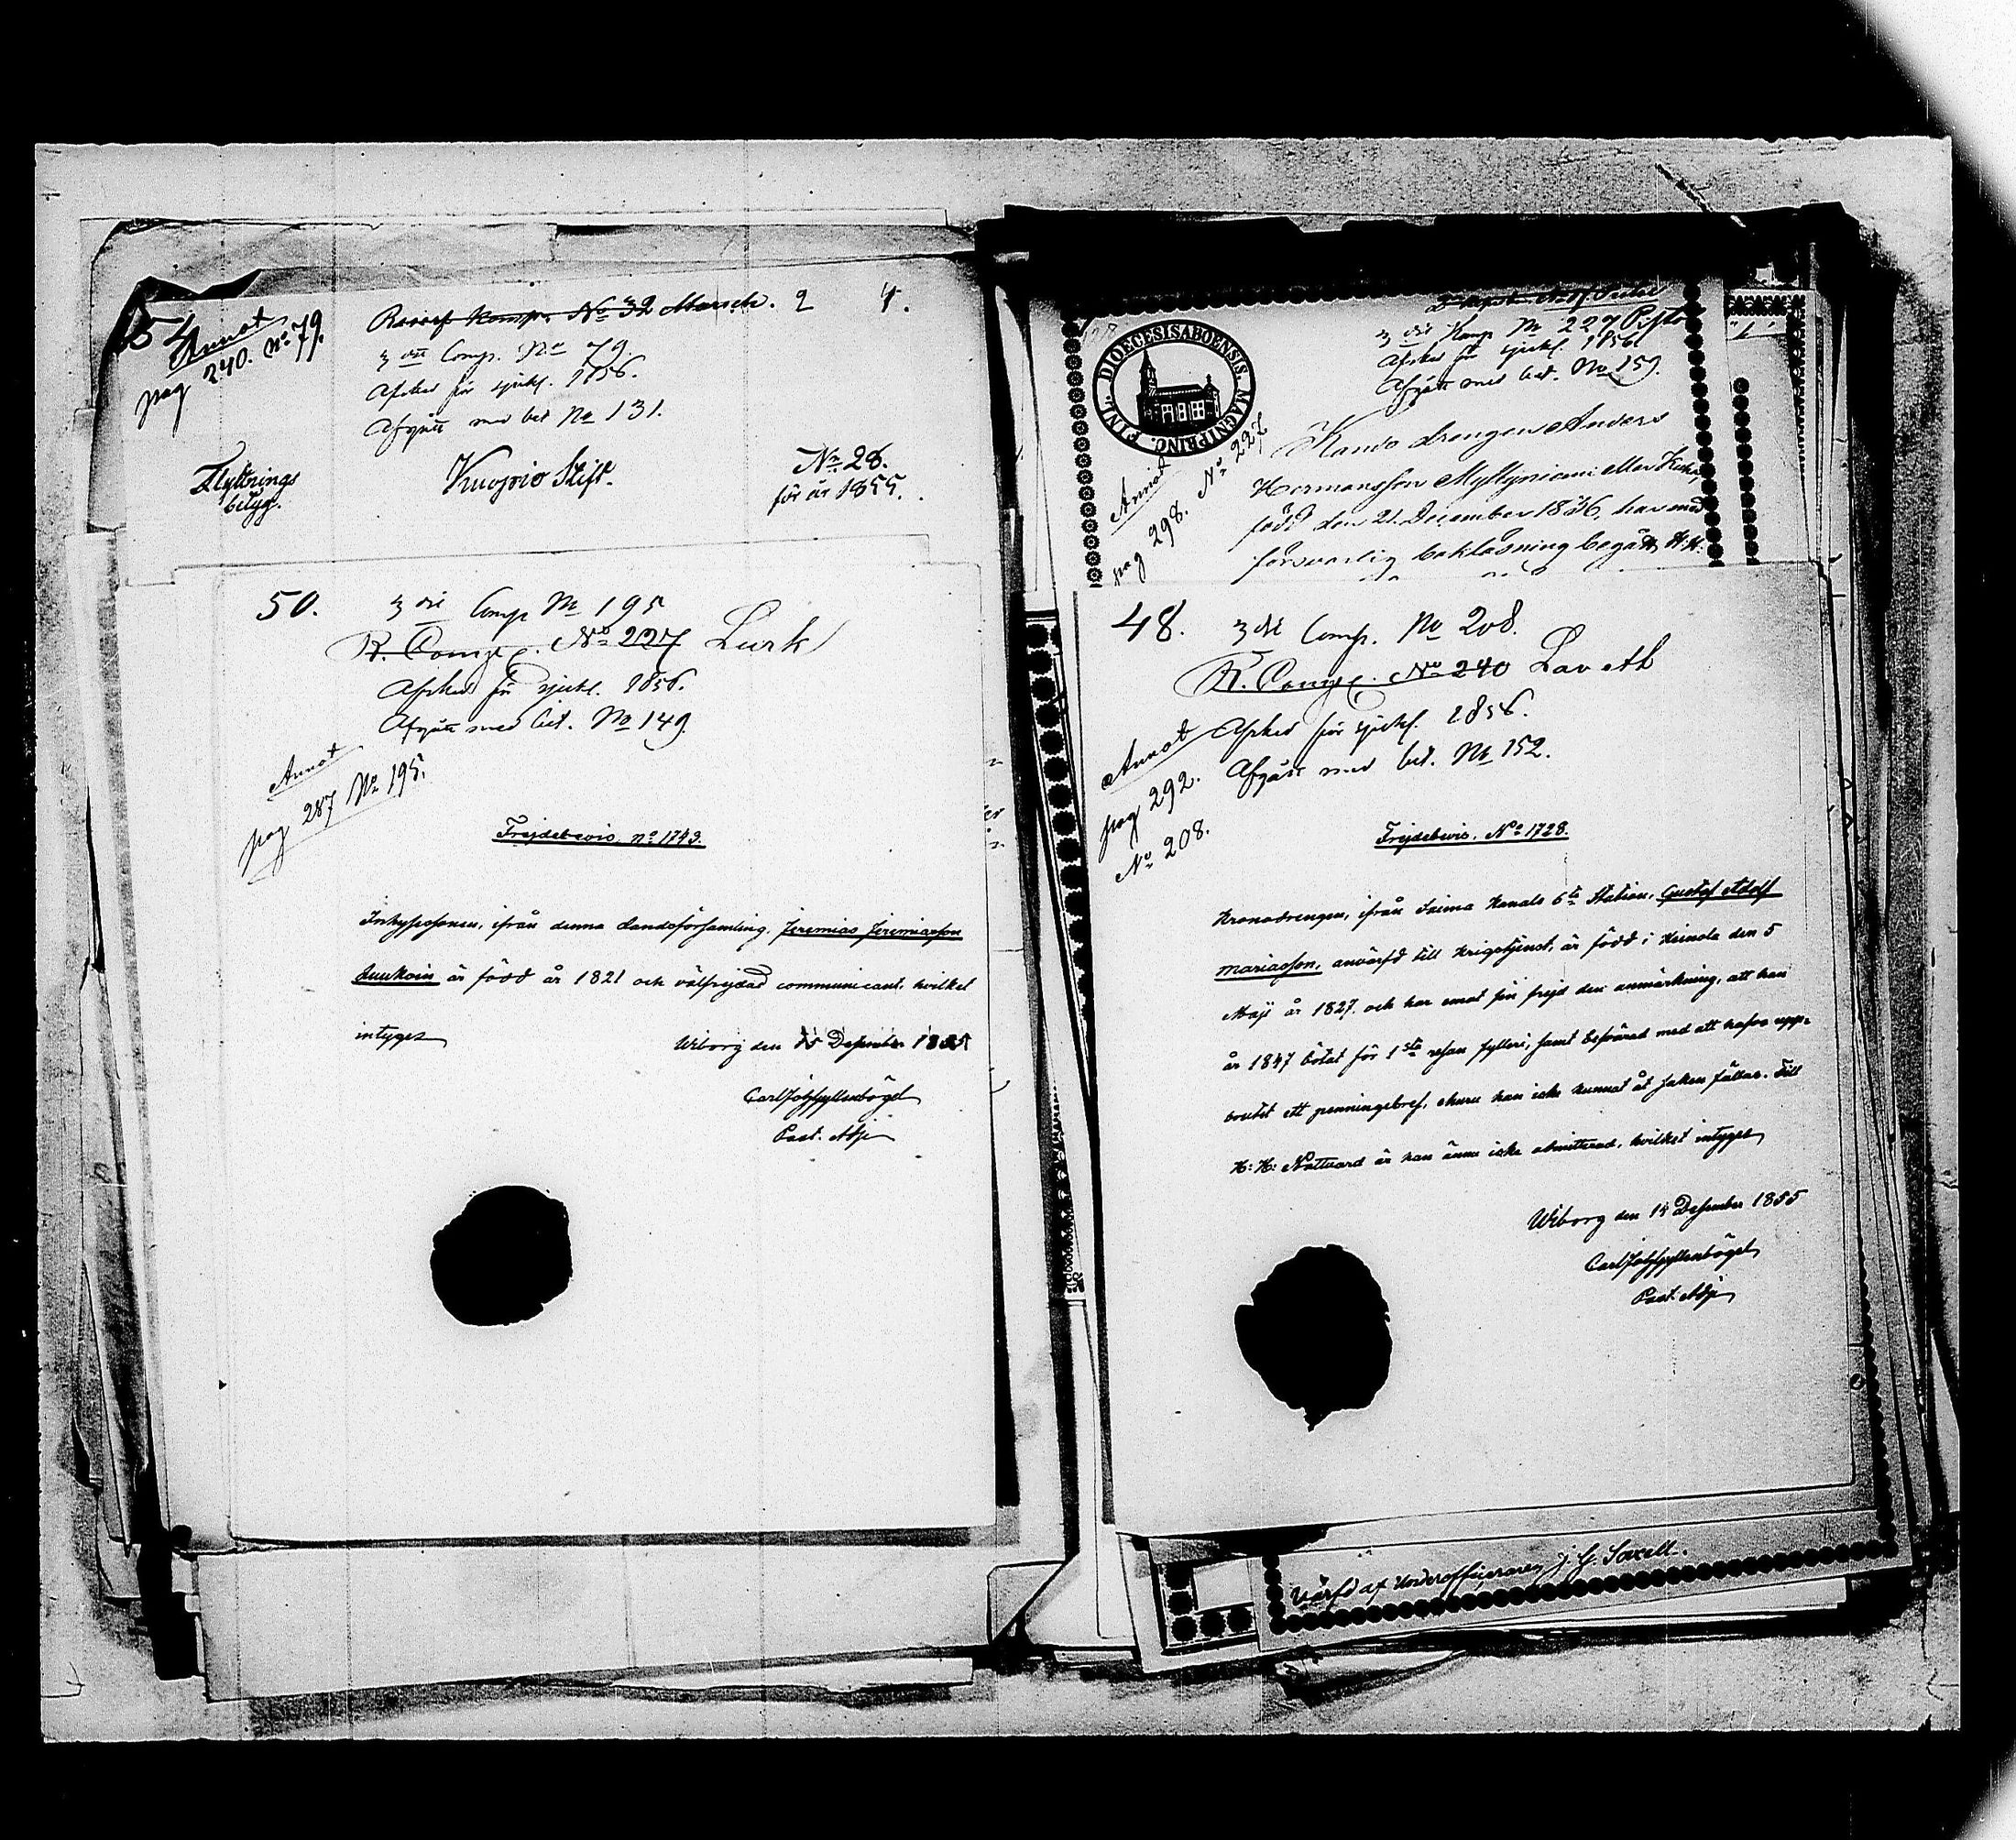 54
Annot
pag 240. No 79.
Reserf Komp. No 32 Marsch. 2 4.
3 die Comp. No 79.
Afsked för sjukl. 1856.
Afgått med bet No 131.
Flyttnings
betyg.
Kuopio Stift.
No 28.
för år 1855.
50.
3 die Comp No 195
R. Comp. No 227 Lurk
Afsked för sjukl. 1856.
Afgått med bet. No 149.
Annot
pag 287 No 195.
Frejdebevis. no 1743.
Inhysessonen, ifrån denna Landsförsamling, Jeremias Jeremiasson
är född år 1821 och välfrejdad communicant, hvilket
intygas
Wiborg den 15 December 1855
Carl Joh Gyllenbögel
Past. Adj.
DIOECESIS ABOENSIS. MAGNI PRINC. FINL.
3 die Komp No 227 Pisto
Afsked för sjukl. 1856
Afgått med bet. No 159.
Annot
pag 298. No 227
drengen Anders
Hermansson Myllyniemi eller
född den 21. December 1836, har med
försvarlig beklädning begått H. H.
48.
3 die Comp. No 208.
R. Comp. No 240 Laveth
Afsked för sjukl. 1856.
Afgått med bet. No 152.
Annot
pag 292.
No 208.
Frejdebevis. No 1728.
Kronodrengen, ifrån Saima Kanals 6te Station, Gustaf Adolf
Mariasson, anvärfd till krigstjenst, är född i Heinola den 5
Maji år 1827. och har emot sin frejd den anmärkning, att han
år 1847 bötat för 1sta resan fylleri, samt besvärad med att hafva upp-
brutit ett penningebref, ehuru han icke kunnat åt saken fällas. Till
H: H: Nattvard är han ännu icke admitterad, hvilket intygas
Wiborg den 14 December 1855
Carl Joh Gyllenbögel
Past. Adj.
Värfd af Underofficeraren J. G. Saxell.